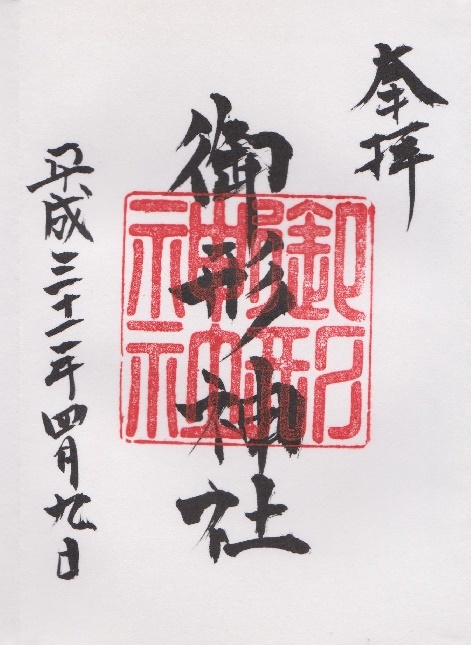 奉拝
御形神社
平成三十一年四月九日
御形
神社